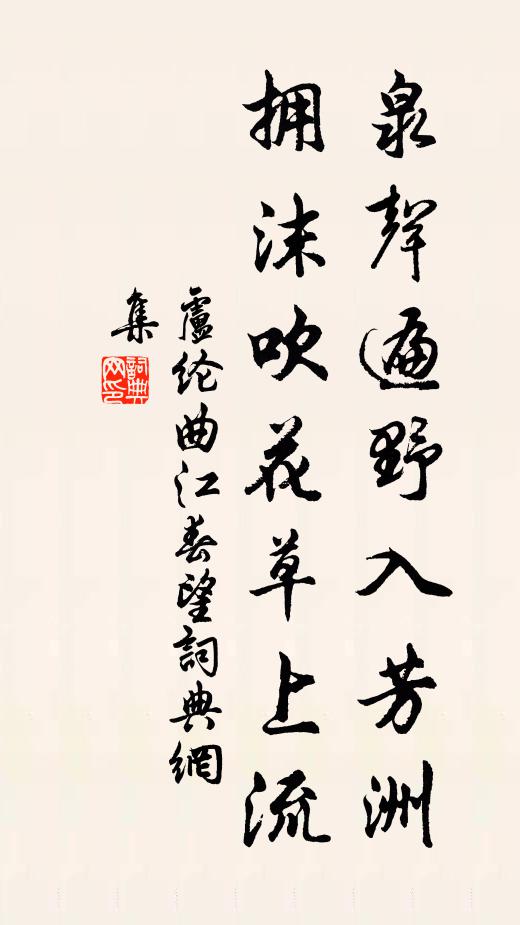 泉聲遍野入芳洲
拥沫吹花草上流
盧纶曲江春望詞典網
集
詞典网印